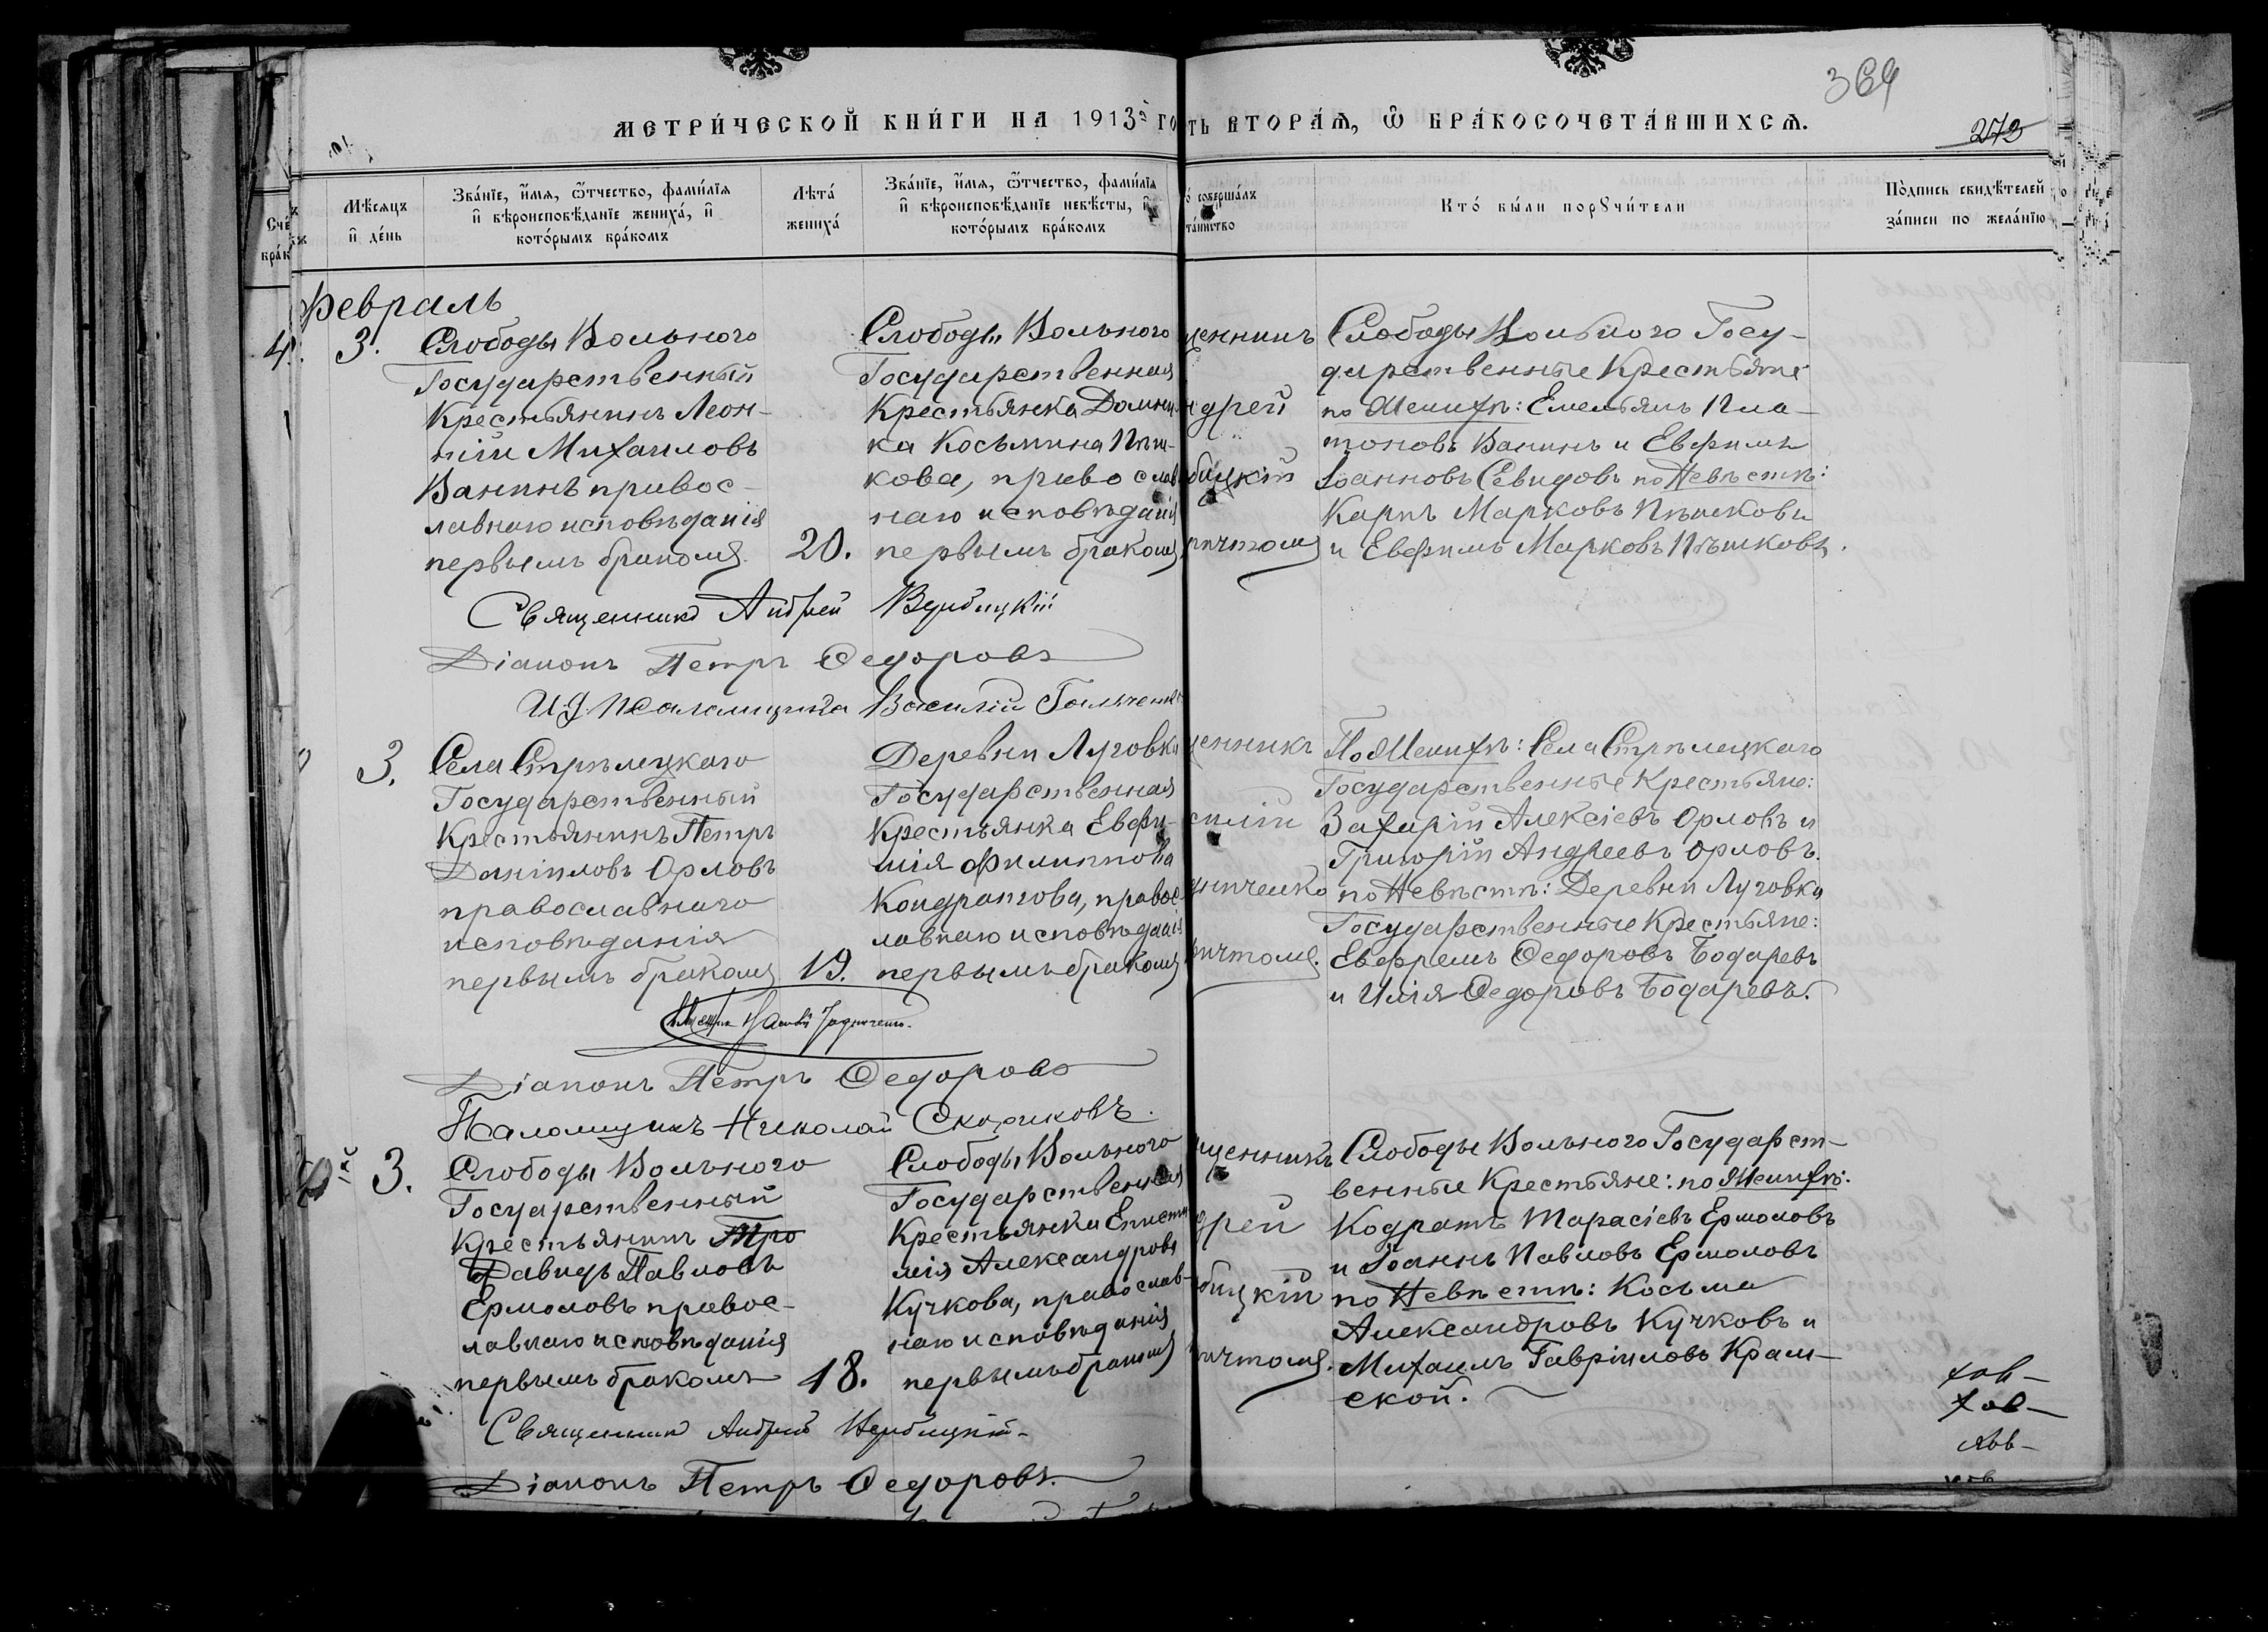 364
МЕТРИ́ЧЕСКОЙ КНИ́ГИ НА 1913й ГО
ТЬ ВТОРА́Ѧ, Ѡ БРА́КОСОЧЕТА́ВШИХСѦ.
272
Сче
брак
Мѣсяцъ
и де́нь
Зва́нїе, и́мѧ, ѻ́тчество, фами́лїѧ
и вѣроисповѣ́данїе жениха́, и
кото́рымъ бра́комъ
Лѣта́
жениха́
Зва́нїе, и́мѧ, ѻ́тчество, фами́лїѧ
и вѣроисповѣ́данїе невѣ́сты, и
кото́рымъ бра́комъ
о́ соверша́лъ
та́инство
Кто́ бы́ли порꙋчи́тели
По́дпись свидѣ́телей
за́писи по жела́нїю
Февраль
4. 3.
Слободы Вольного
Государственный
Крестьянинъ Леон-
тій Михаиловъ
Ванинъ правос-
лавнаго исповѣданія
первымъ бракомъ
20.
Слободы Вольного
Государственная
Крестьянка Домни-
ка Косьмина Пѣш-
кова, православ
наго исповѣданія
первымъ бракомъ
щенникъ
ндрей
бицкій
ричтомъ
Слободы Вольного Госу-
дарственные Крестьяне
по Женихѣ: Емельянъ Пла-
тоновъ Ванинъ и Евфимъ
Іоанновъ Севидовъ по Невѣстѣ:
Карпъ Марковъ Пѣшковъ
и Евфимъ Марковъ Пѣшковъ.
Священникъ Андрей Вербицкій
Діаконъ Петръ Федоровъ
И. д. Псаломщика Василій
3.
Села Стрѣлецкаго
Государственный
Крестьянинъ Петръ
Даніиловъ Орловъ
православнаго
исповѣданія
первымъ бракомъ
19.
Деревни Луговки
Государственная
Крестьянка Евфи-
мія Филиппова
Кондратова, правос-
лавнаго исповѣданія
первымъ бракомъ
щенникъ
силій
дниченко
ричтомъ.
По Женихѣ: Села Стрѣлецкаго
Государственные Крестьяне:
Захарій Алексіевъ Орловъ и
Григорій Андреевъ Орловъ.
по Невѣстѣ: Деревни Луговки
Государственные Крестьяне:
Евфремъ Федоровъ Бодаревъ
и Илія Федоровъ Бодаревъ.
Діаконъ Петръ Федоровъ
Псаломщикъ Николай Скориковъ.
3.
Слободы Вольного
Государственный
Крестьянинъ Тро
Давидъ Павловъ
Ермоловъ правос-
лавнаго исповѣданія
первымъ бракомъ
18.
Слободы Вольного
Государственная
Крестьянка Еписти
мія Александрова
Кучкова, православ-
наго исповѣданія
первымъ бракомъ
щенникъ
дрей
бицкій
ричтомъ.
Слободы Вольного Государст-
венные Крестьяне: по Женихѣ:
Кодратъ Тарасіевъ Ермоловъ
и Іоаннъ Павловъ Ермоловъ
по Невѣстѣ: Косьма
Александровъ Кучковъ и
Михаилъ Гавріиловъ Крам-
ской.
Священникъ Андрей Вербицкій
Діаконъ Петръ Федоровъ.